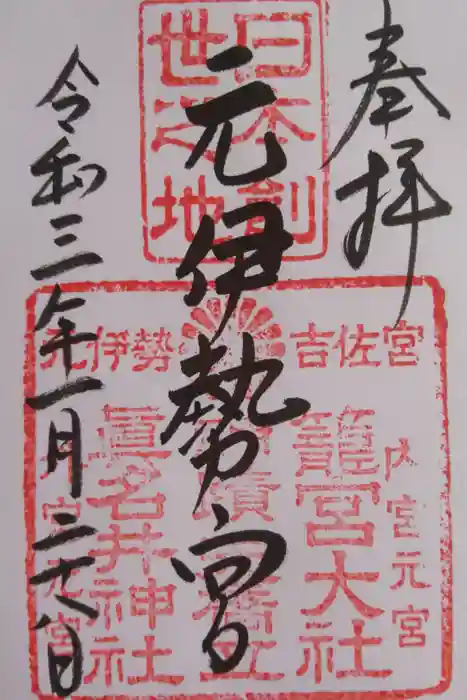 奉拝
日本創
世之地
元伊勢宮
令和三年一月二十八日
元伊勢
吉佐宮
内宮元宮
籠宮大社
眞名井神社